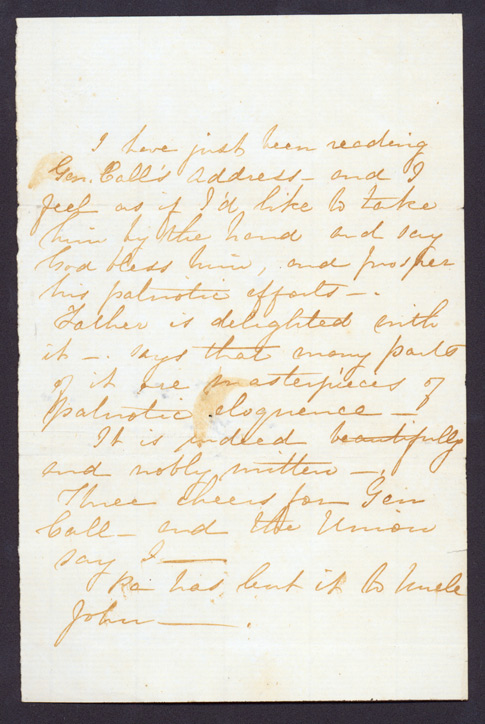 I have just been reading
Gen. Call's address - and I
feel as if I'd like to take
him by the hand and say
God bless him, and prosper
his patriotic efforts -.
Father is delighted with
it -. says that many parts
of it are masterpieces of
patriotic eloquence -
It is indeed beautifully
and nobly written -.
Three cheers for Gen
Call - and the Union
say I -
Pa has lent it to Uncle
John -.